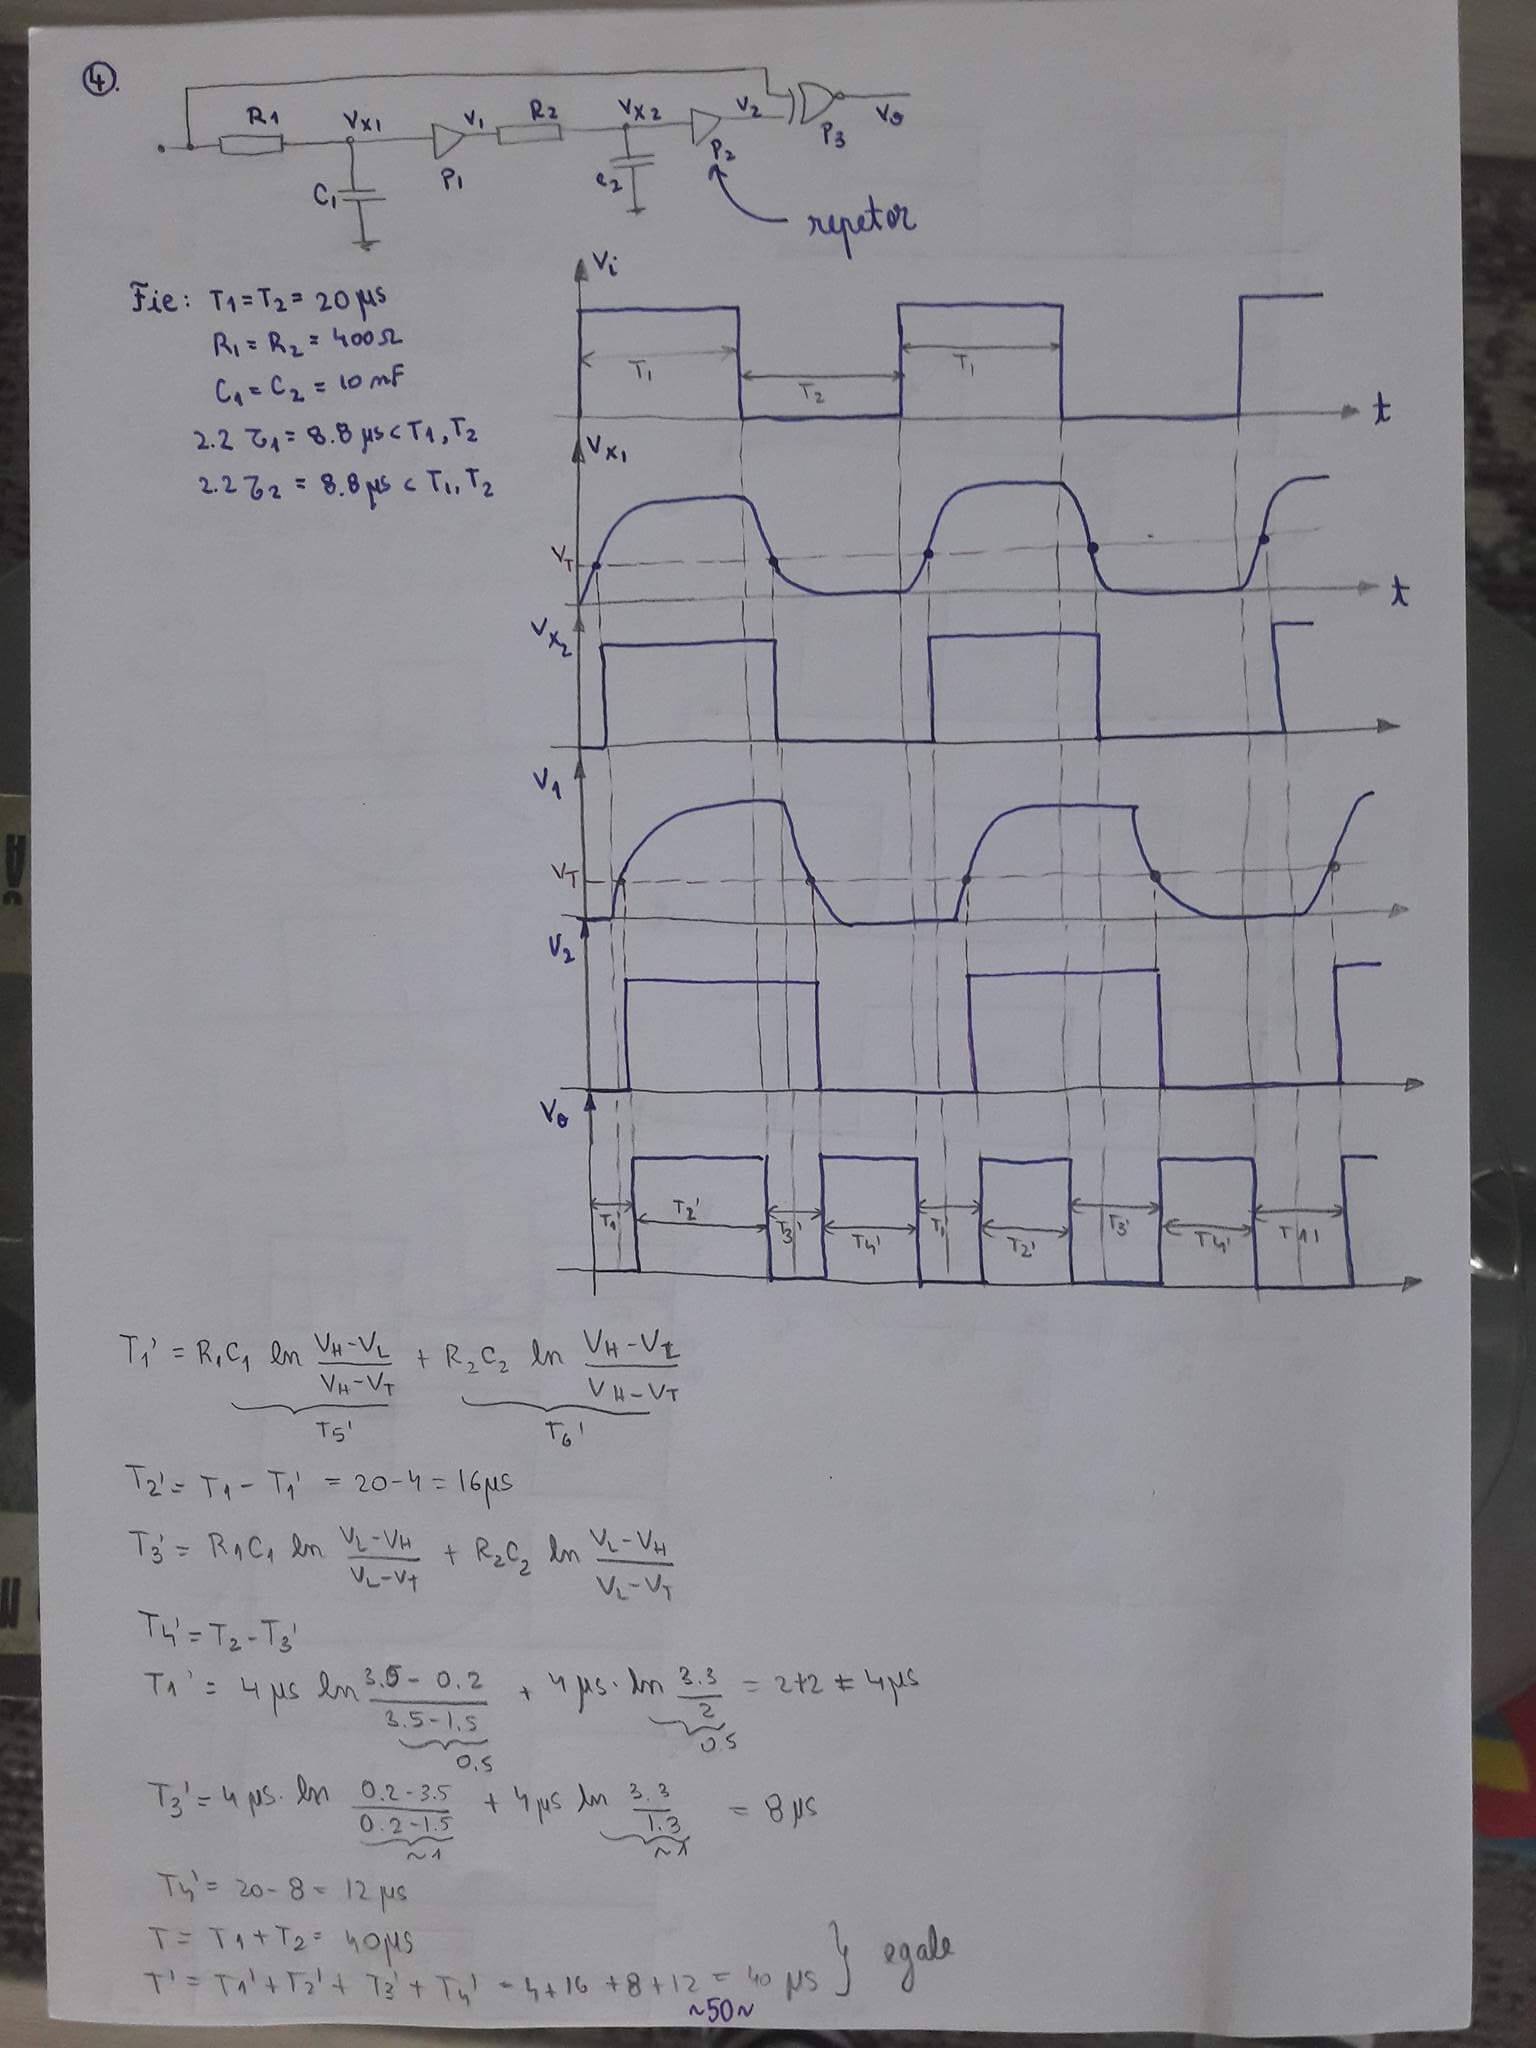 4.
R1 Vx1 V1 R2 Vx2 V2 V0
C1 P1 C2 P2 P3
repetor
Fie: T1 = T2 = 20 µs
R1 = R2 = 400Ω
C1 = C2 = 10 nF
2.2 τ1 = 8.8 µs < T1, T2
2.2 τ2 = 8.8 µs < T1, T2
Vi
T1 T2 T1
t
Vx1
VT
t
Vx2
V1
VT
V2
V0
T1' T2' T3' T4' T1' T2' T3' T4' T1'
T1' = R1C1 ln (VH-VL)/(VH-VT) + R2C2 ln (VH-VL)/(VH-VT)
T5' T6'
T2' = T1 - T1' = 20-4 = 16µs
T3' = R1C1 ln (VL-VH)/(VL-VT) + R2C2 ln (VL-VH)/(VL-VT)
T4' = T2 - T3'
T1' = 4 µs ln (3.5-0.2)/(3.5-1.5) + 4 µs · ln 3.3/2 = 2+2 = 4µs
0.5 0.5
T3' = 4 µs · ln (0.2-3.5)/(0.2-1.5) + 4 µs ln 3.3/1.3 = 8 µs
~1 ~1
T4' = 20-8 = 12 µs
T = T1+T2 = 40µs
T' = T1'+T2'+T3'+T4' = 4+16+8+12 = 40 µs } egale
~50~